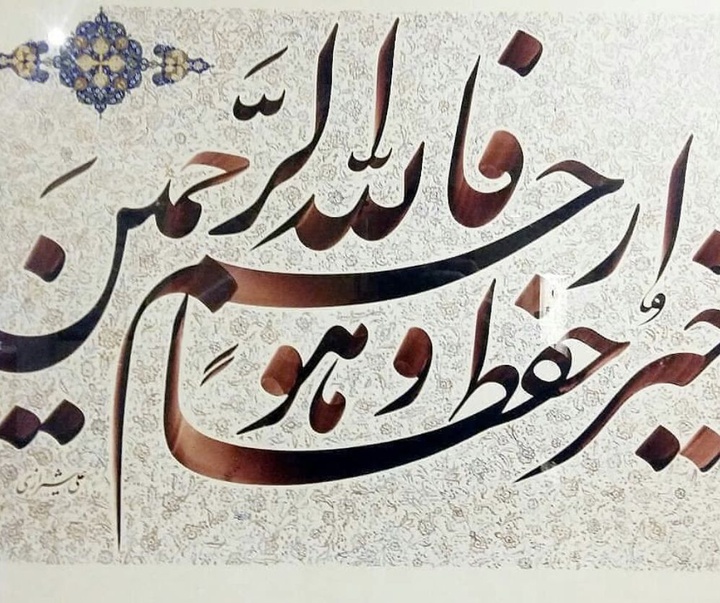 فالله خیرٌ حفظاً وهو ارحم الرَّحمین
علی شیرازی